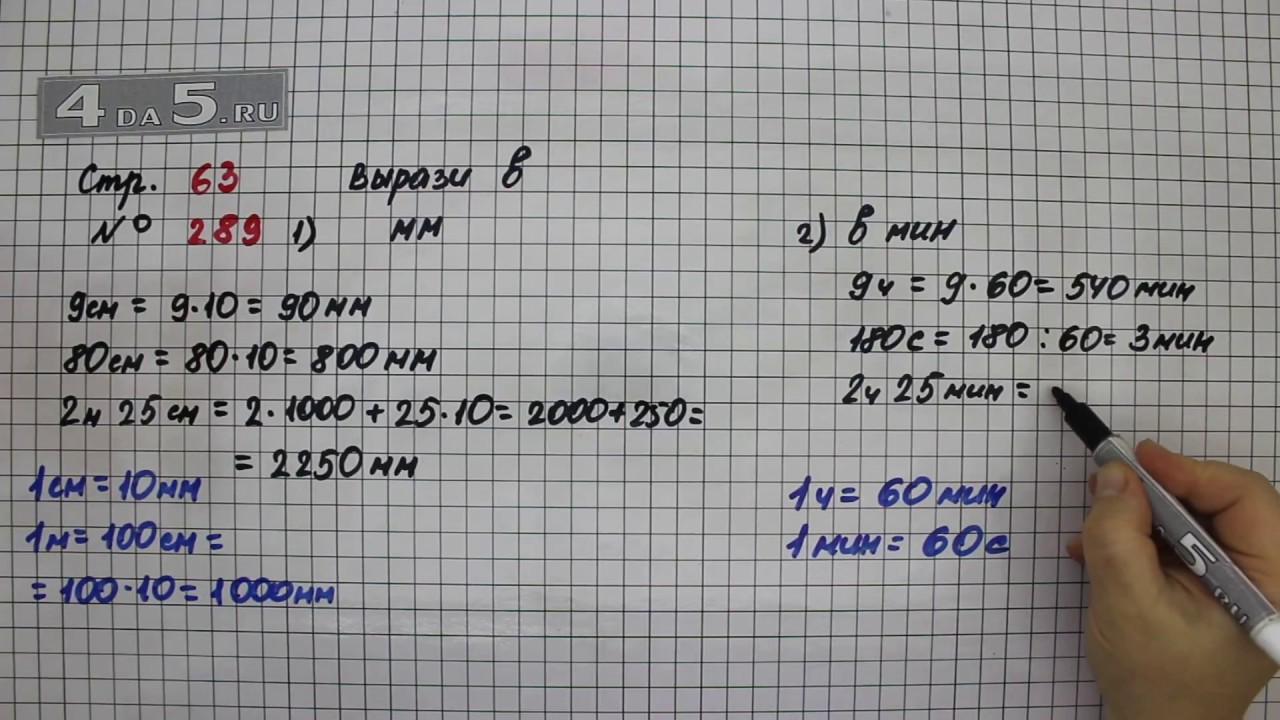 4DA5.RU
Стр. 63 Вырази в
№ 289 1) мм
9см = 9·10 = 90мм
80см = 80·10 = 800мм
2м 25см = 2·1000 + 25·10 = 2000+250=
= 2250мм
1см = 10мм
1м = 100см =
= 100·10 = 1000мм
2) в мин
9ч = 9·60 = 540мин
180с = 180:60 = 3мин
2ч 25мин =
1ч = 60мин
1мин = 60с
5.RU